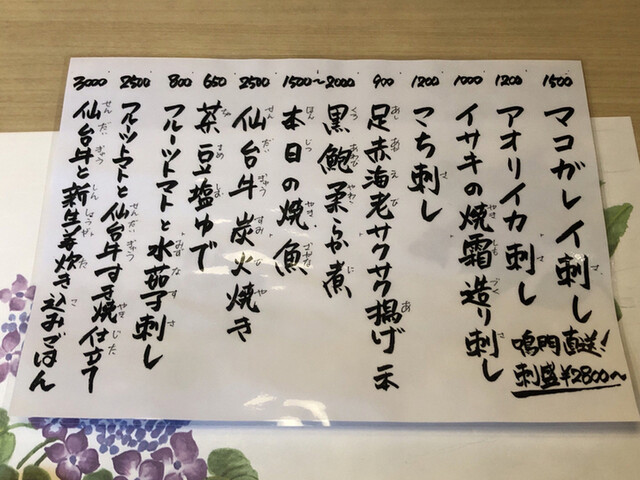 1500 マコガレイ刺し
鳴門直送!
刺盛¥2800〜
1200 アオリイカ刺し
1000 イサキの焼霜造り刺し
1200 こち刺し
900 足赤海老サクサク揚げ 一本
2000 黒鮑柔らか煮
1500〜 本日の焼魚
2500 仙台牛炭火焼き
650 茶豆塩ゆで
800 フルーツトマトと水茄子刺し
2500 フルーツトマトと仙台牛すき焼仕立て
3000 仙台牛と新生姜炊き込みごはん